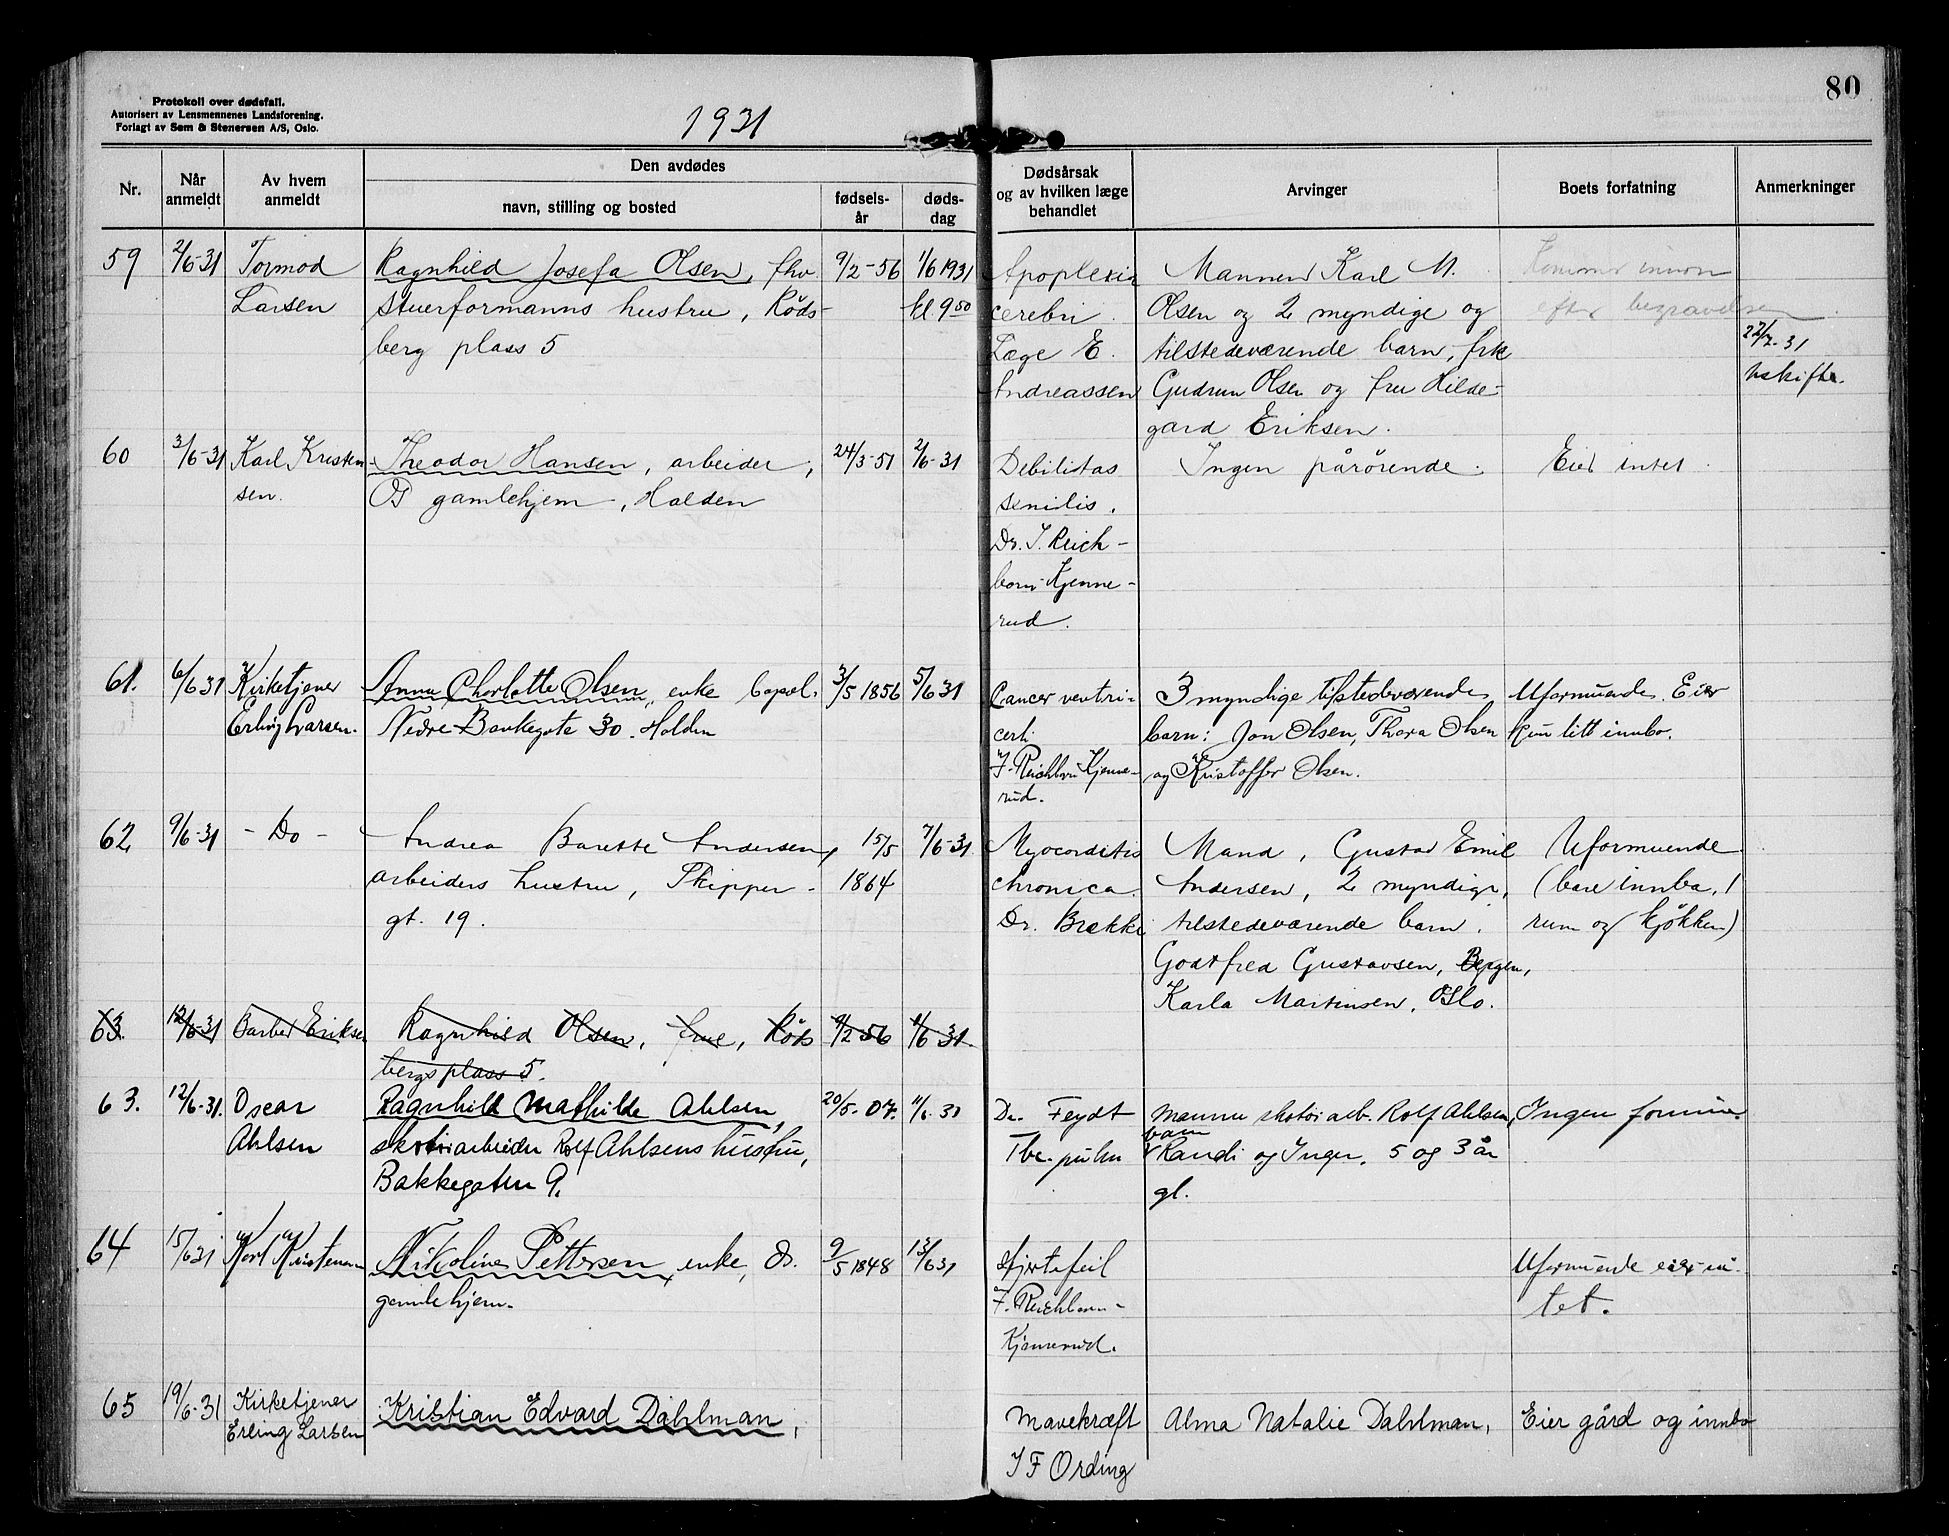 80
Protokoll over dødsfall.
Autorisert av Lensmennenes Landsforening.
Forlagt av Sem & Stenersen A/S, Oslo.
1931
Nr.
Når anmeldt
Av hvem anmeldt
Den avdødes
navn, stilling og bosted
fødsels-år
døds-dag
Dødsårsak og av hvilken læge behandlet
Arvinger
Boets forfatning
Anmerkninger
59
2/6-31
Tormod
Larsen
Ragnhild Josefa Olsen, fhv.
stuerformanns hustru, Røds-
berg plass 5
9/2-56
1/6 1931
kl 9 50
Apoplexia
cerebri.
Læge E.
Andreassen
Mannen Karl M.
Olsen og 2 myndige og
tilstedeværende barn, frk
Gudrun Olsen og fru Hilde-
gard Eriksen.
Kommer innom
efter begravelsen.
22/7-31
Uskifte.
60
3/6-31
Karl Kristen-
sen.
Theodor Hansen, arbeider,
Os gamlehjem, Halden
24/3-51
2/6-31
Debilitas
senilis.
Dr. I. Reich-
born-Kjenne-
rud.
Ingen pårørende.
Eier intet.
61.
6/6 31
Kirketjener
Erling Larsen.
Anna Charlotte Olsen, enke
Nedre Bankegate 30. Halden
3/5 1856
5/6 31
Cancer ventri-
culi.
I. Reichborn Kjenne-
rud.
3 myndige tilstedeværende
barn: Jon Olsen, Thora Olsen
og Kristoffer Olsen.
Uformuende. Eier
kun litt innbo.
62
9/6-31
- Do -
Andrea Barette Andersen,
arbeiders hustru, Skipper-
gt. 19.
15/5
1864
7/6-31.
Myocarditis
chronica.
Dr. Brekke
Mand, Gustav Emil
Andersen, 2 myndige,
tilstedeværende barn.
Godtfred Gustavsen, Bergen,
Karla Martinsen, Oslo.
Uformuende
(bare innbo, 1
rum og kjøkken)
63.
12/6-31
Barber Eriksen
Ragnhild Olsen, frue, Røds
bergs plass 5.
9/2 56
1/6 31.
63.
12/6-31.
Oscar
Ahlsen
Ragnhild Mathilde Ahlsen,
skotøiarbeider Rolf Ahlsens hustru,
Bakkegaten 9.
20/5-07.
11/6-31
Dr. Feydt
Tbc. pulm
Mannen skotøiarb. Rolf Ahlsen,
barn
Randi og Inger, 5 og 3 år
gl.
Ingen formue
64
15/6 31
Karl Kristensen
Nikoline Pettersen, enke, Os.
gamlehjem.
9/5 1848
13/6 31
Hjertefeil
I. Reichborn-
Kjennerud.
Uformuende eier in-
tet.
65
19/6-31
Kirketjener
Erling Larsen
Kristian Edvard Dahlman,
Mavekræft
I F Ording
Alma Natalie Dahlman,
Eier gård og innbo